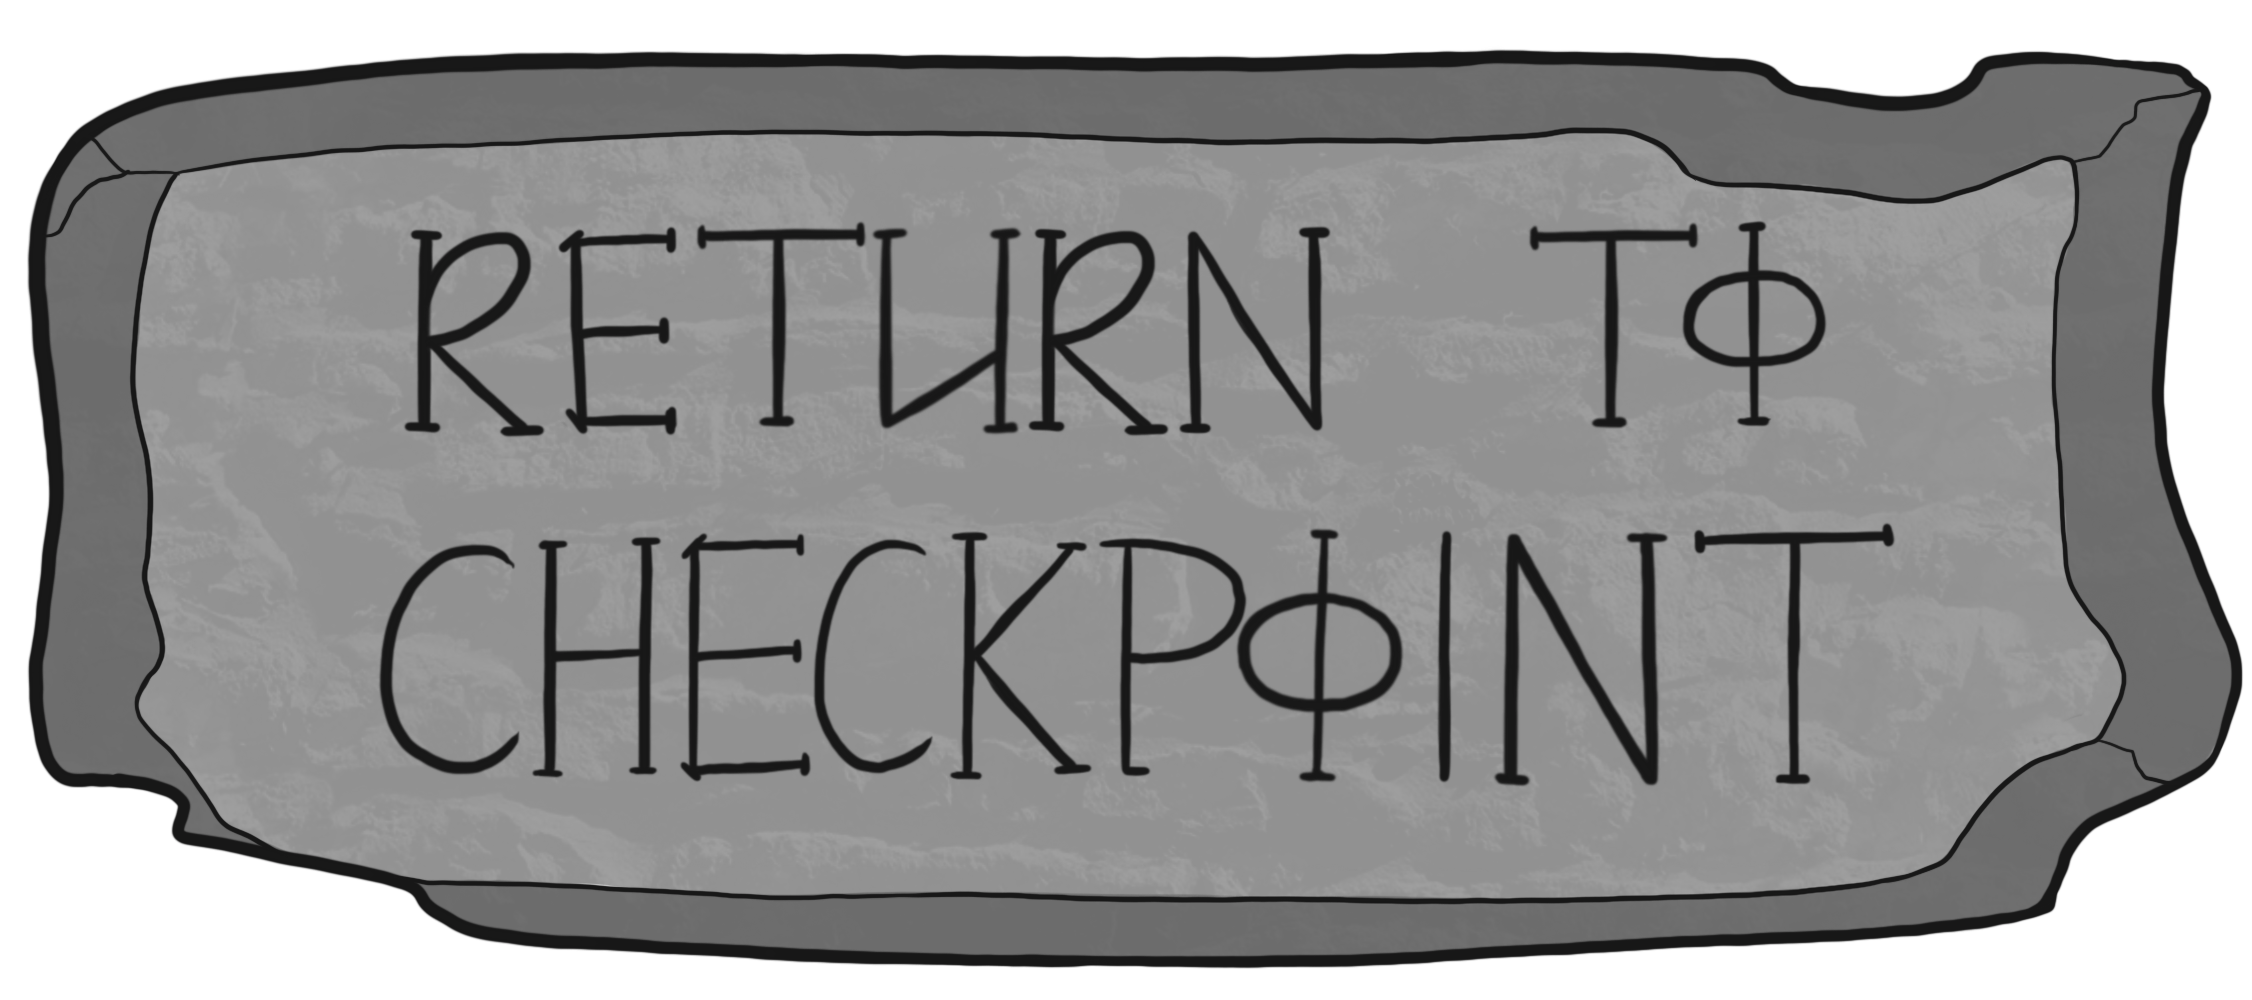 RETURN TΦ
CHECKPΦINT